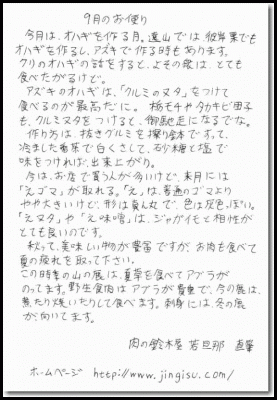 9月のお便り
今月は、オハギを作る月。遠山では彼岸菓でも
オハギを作るし、アズキで作る時もあります。
クリのオハギの話をすると、よその衆は、とても
食べたがるけど。
アズキのオハギは、「クルミのヌタ」をつけて
食べるのが最高だに。栃モチやタカキビ団子
も、クルミヌタをつけると、御馳走になるでな。
作り方は、抜きグルミを擦り鉢ですって、
冷ました番茶で白くさして、砂糖と塩で
味をつければ、出来上がり。
今は、お店で買う人が多いけど、来月には
「エゴマ」が取れる。「え」は、普通のゴマより
やや大きいけど、形は真ん丸で、色は灰色ぽい。
「エヌタ」や「え味噌」は、ジャガイモと相性が
とても良いのです。
秋って、美味しい物が豊富ですが、お肉も食べて
夏の疲れを取って下さい。
この時季の山の展は、夏草を食べてアブラが
のってます。野生食肉はアブラが貴重で、今の展は、
煮たり焼いたりして食べます。刺身には、冬の鹿
が、向いてます。
肉の鈴木屋 若旦那 直肇
ホームページ http://www.jingisu.com/